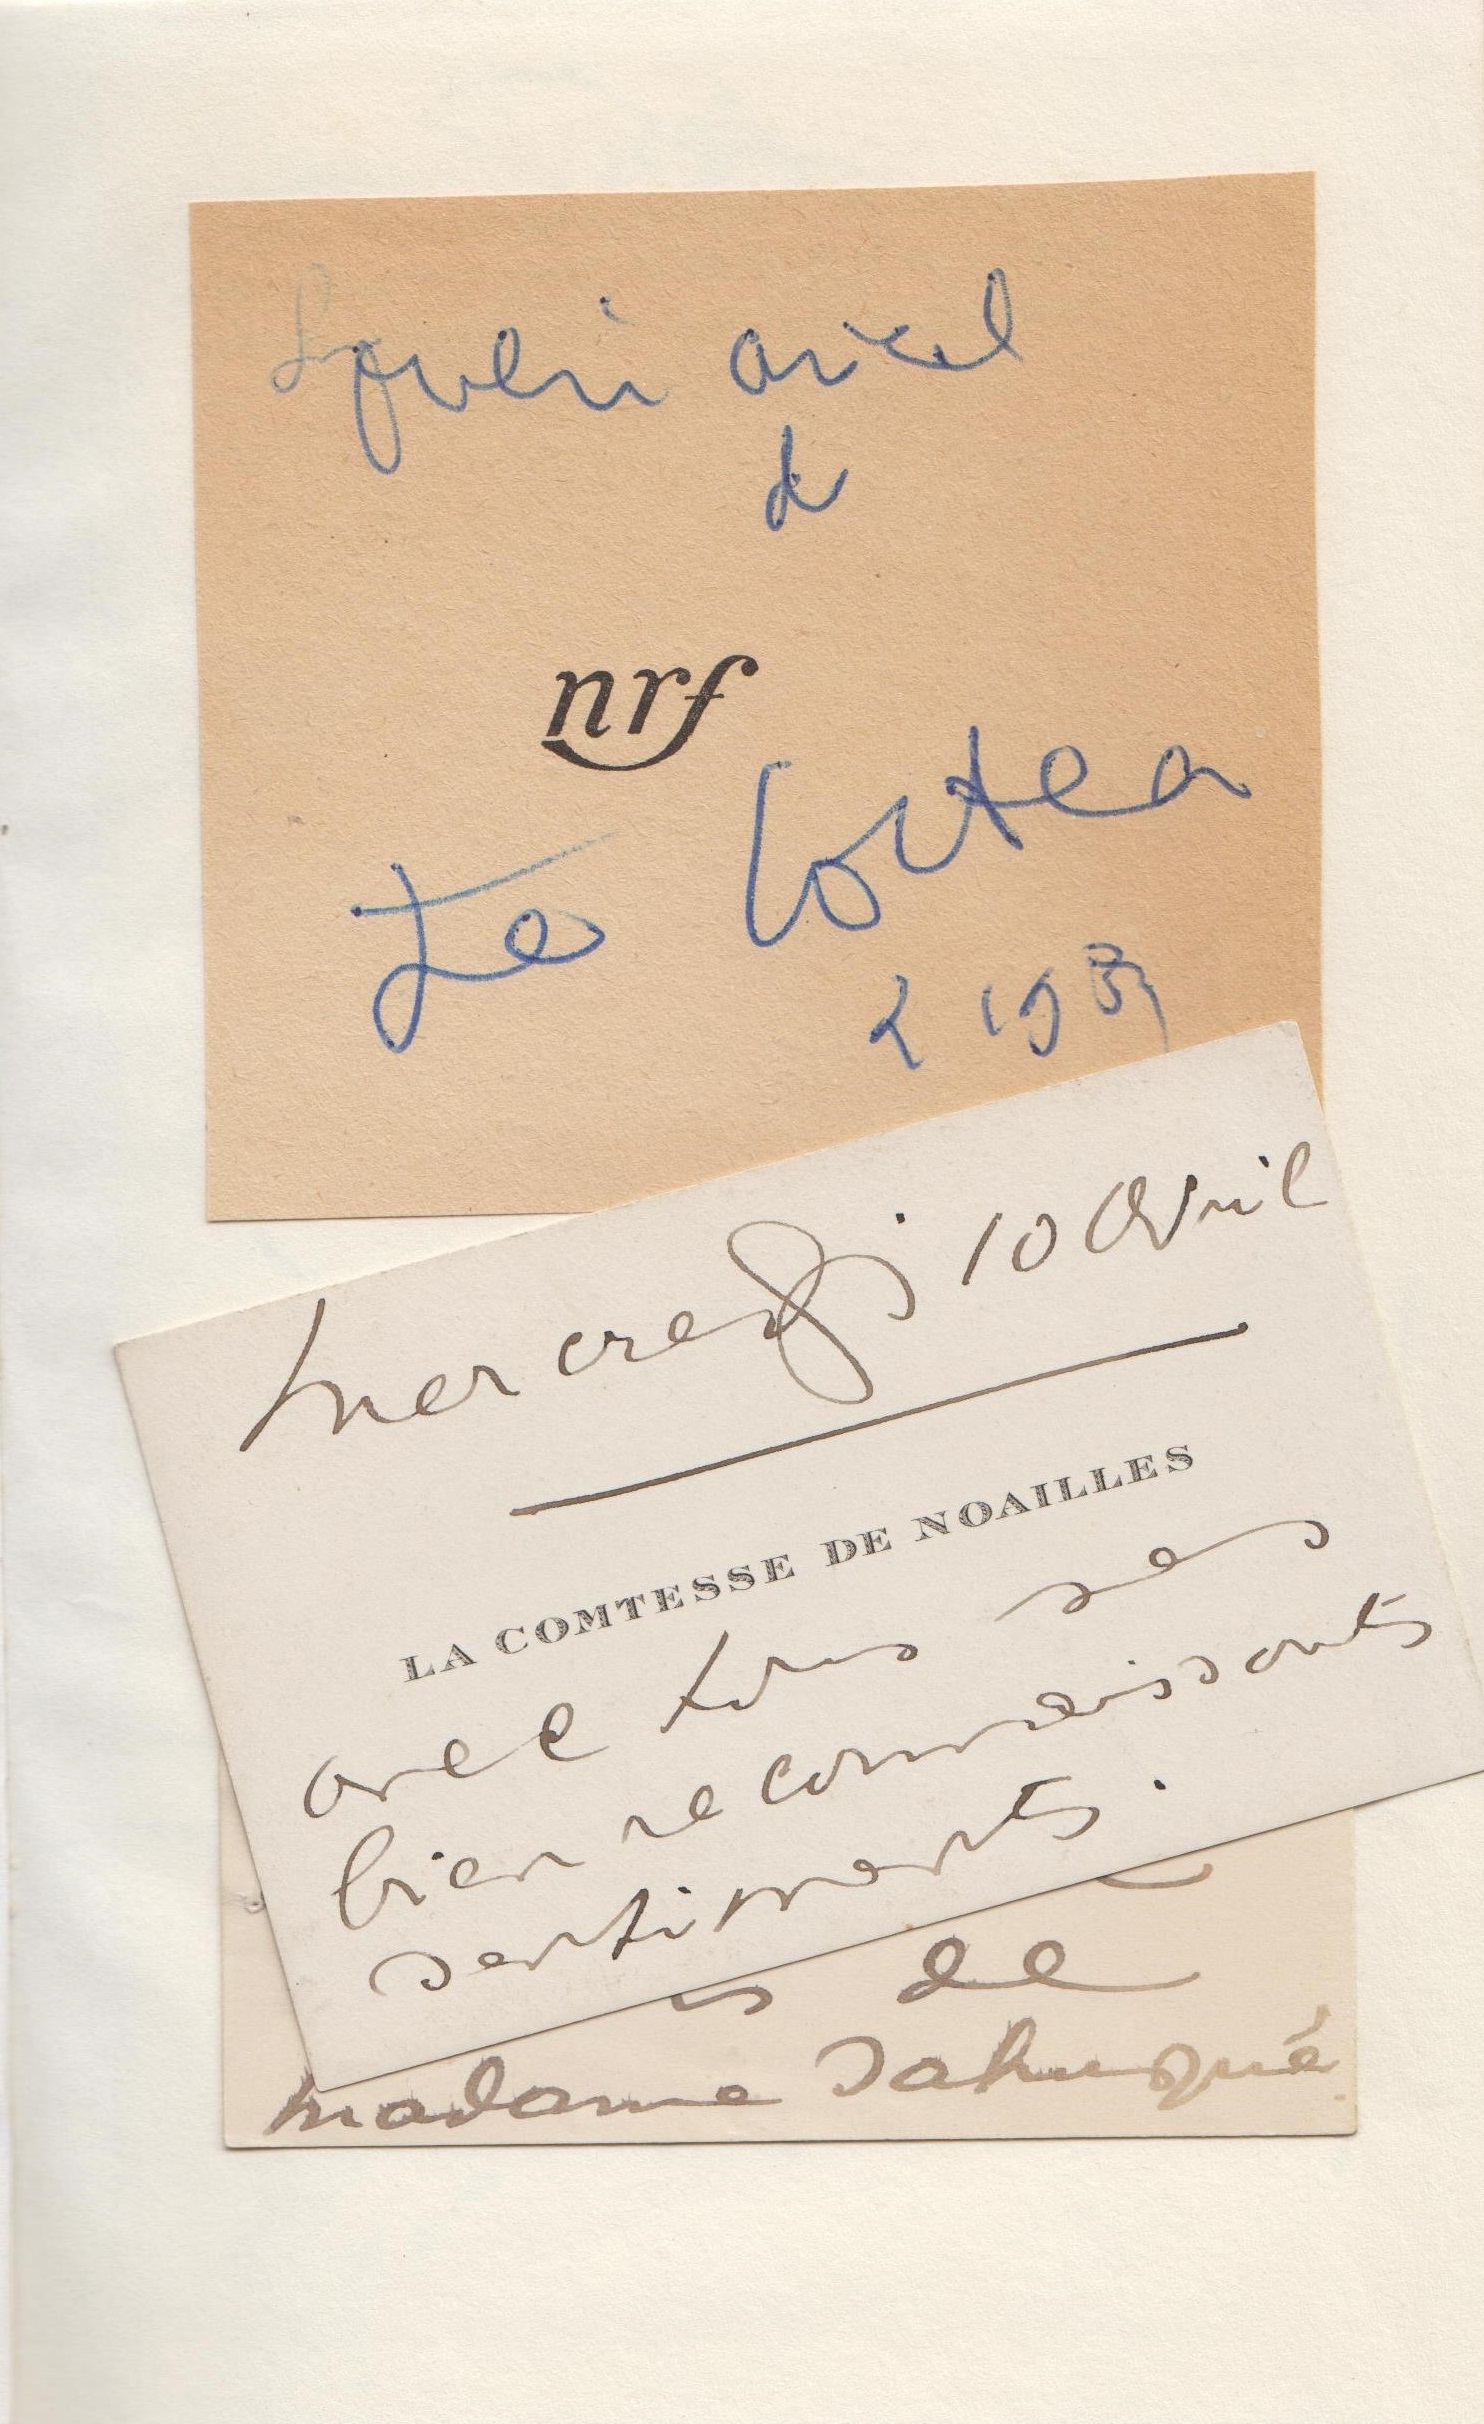 Souvenir amical
de
nrf
Jean Cocteau
1953
Mercredi 10 Avril
LA COMTESSE DE NOAILLES
avec tous ses
bien reconnaissants
sentiments.
de
madame